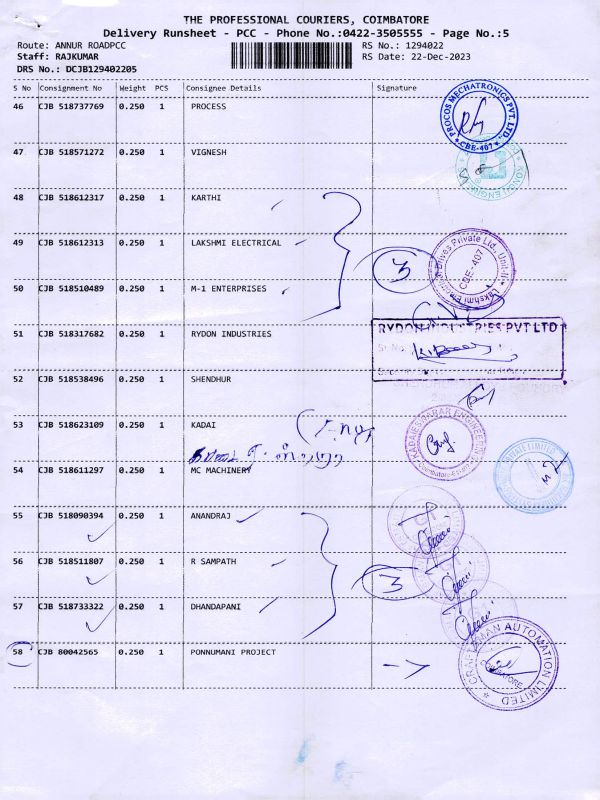 THE PROFESSIONAL COURIERS, COIMBATORE
Delivery Runsheet - PCC - Phone No.:0422-3505555 - Page No.:5
Route: ANNUR ROADPCC RS No.: 1294022
Staff: RAJKUMAR RS Date: 22-Dec-2023
DRS No.: DCJB129402205
S No Consignment No Weight PCS Consignee Details Signature
46 CJB 518737769 0.250 1 PROCESS
PROCOS MECHATRONICS PVT. LTD. CBE-407
47 CJB 518571272 0.250 1 VIGNESH
48 CJB 518612317 0.250 1 KARTHI
49 CJB 518612313 0.250 1 LAKSHMI ELECTRICAL
3
Lakshmi Electrical Drives Private Ltd., Unit-II CBE - 407
50 CJB 518510489 0.250 1 M-1 ENTERPRISES
51 CJB 518317682 0.250 1 RYDON INDUSTRIES
RYDON INDUSTRIES PVT LTD
52 CJB 518538496 0.250 1 SHENDHUR
53 CJB 518623109 0.250 1 KADAI
KADAIESWARAR ENGINEERING
54 CJB 518611297 0.250 1 MC MACHINERY
PRIVATE LIMITED
55 CJB 518090394 0.250 1 ANANDRAJ
56 CJB 518511807 0.250 1 R SAMPATH
3
57 CJB 518733322 0.250 1 DHANDAPANI
58 CJB 80042565 0.250 1 PONNUMANI PROJECT
CRAFTSMAN AUTOMATION LIMITED COIMBATORE